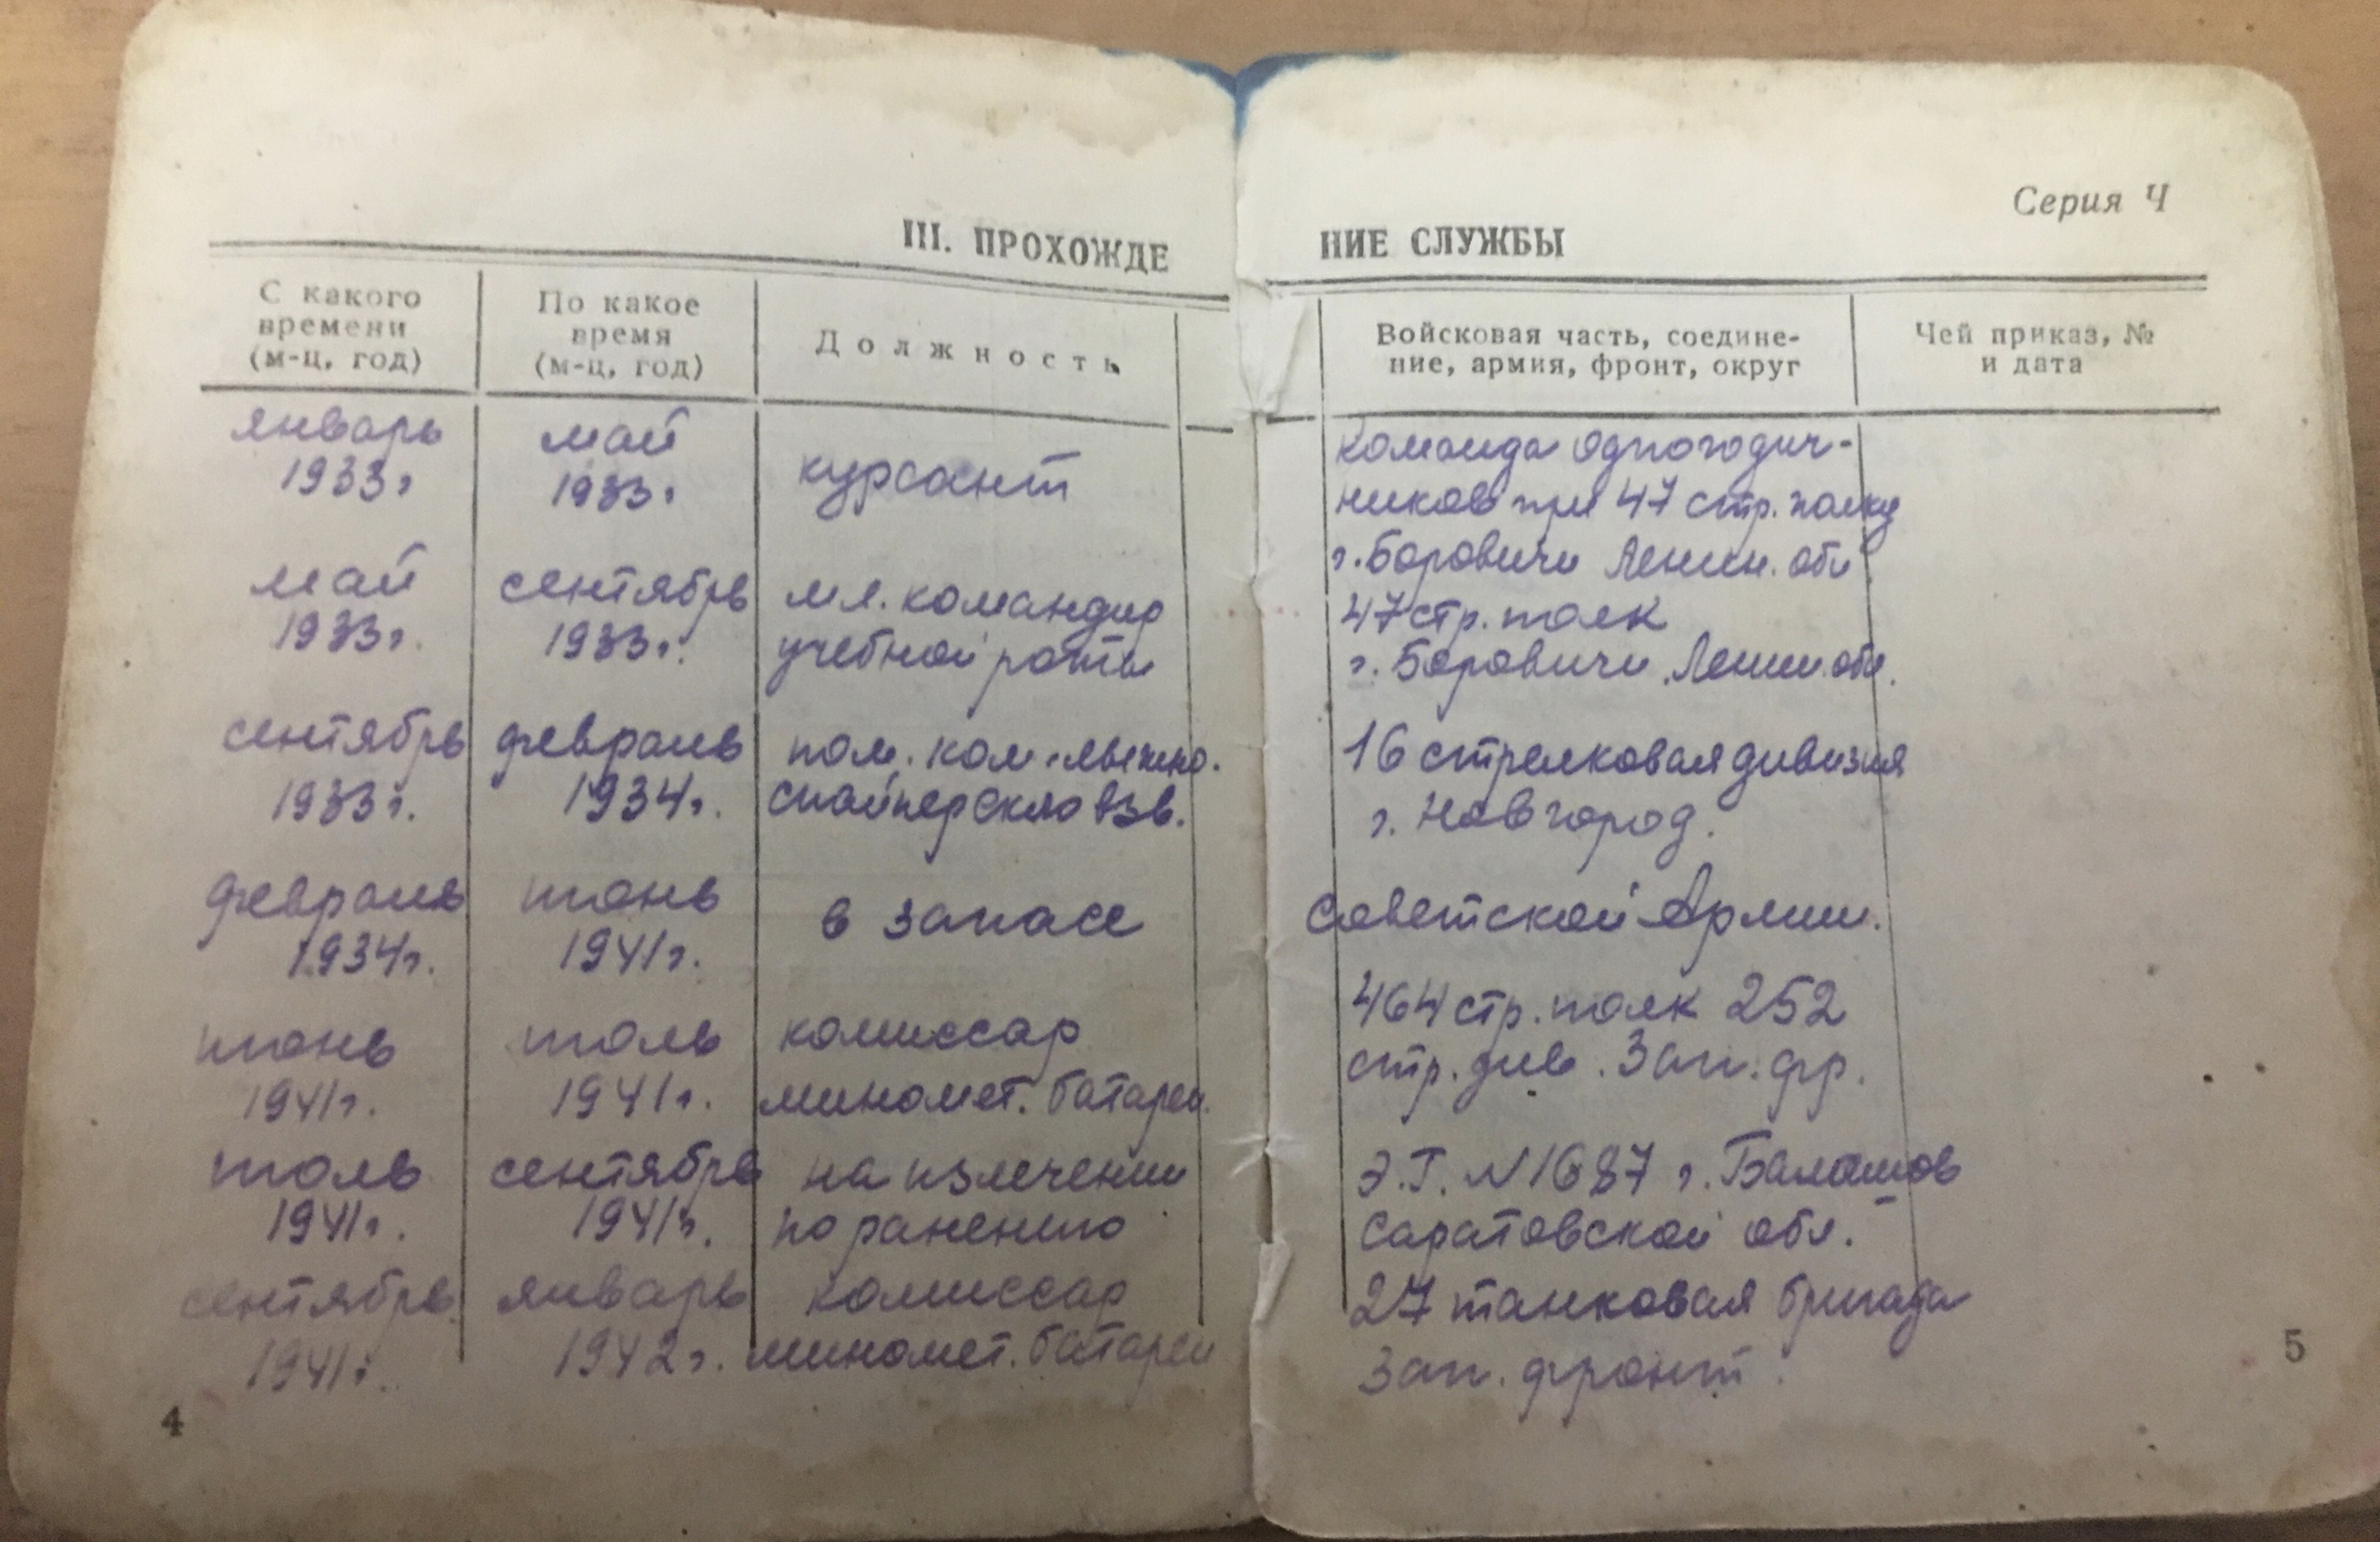 Серия Ч
III. ПРОХОЖДЕ НИЕ СЛУЖБЫ
С какого
времени
(м-ц, год)
По какое
время
(м-ц, год)
Должность
Войсковая часть, соедине-
ние, армия, фронт, округ
Чей приказ, №
и дата
январь
1933г
май
1933г
курсант
команда одногодич-
ников при 47 стр. полку
г. Боровичи Ленин. обл.
май
1933г.
сентябрь
1933г.
мл. командир
учебной роты
47 стр. полк
г. Боровичи Ленин. обл.
сентябрь
1933г.
февраль
1934г.
пом. ком. лыжно.
снайперского взв.
16 стрелковая дивизия
г. Новгород.
февраль
1934г.
июнь
1941г.
в запасе
Советской Армии.
июнь
1941г.
июль
1941г.
комиссар
миномет. батареи.
464 стр. полк 252
стр. див. Зап. фр.
июль
1941г.
сентябрь
1941г.
на излечении
по ранению
Э.Г. N 1687 г. Балашов
Саратовской обл.
сентябрь
1941г.
январь
1942г.
комиссар
миномет. батареи
27 танковая бригада
Зап. фронт.
4
5